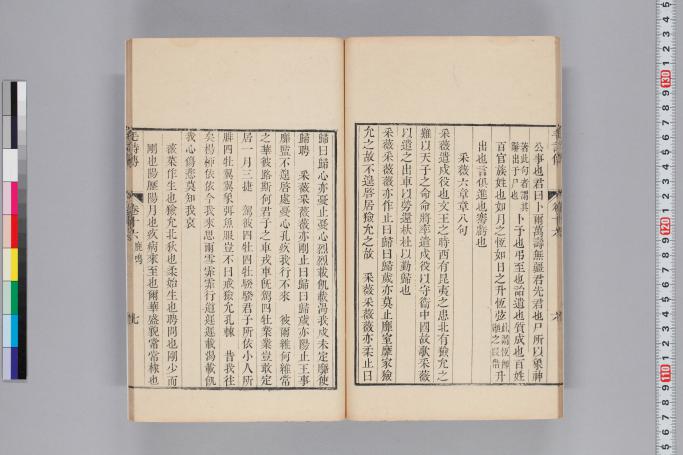 公事也君曰卜爾萬壽無疆君先君也尸所以象神
著此句者謂其
嘏出于尸也
卜予也弔至也詒遺也質成也百姓
百官族姓也如月之恆如日之升恆弦
升
出也言俱進也騫虧也
采薇六章章八句
采薇遣戍役也文王之時西有昆夷之患北有玁允之
難以天子之命命將率遣戍役以守衞中國故歌采薇
以遣之出車以勞還杕杜以勤歸也
采薇采薇薇亦作止曰歸曰歸歲亦莫止靡室靡家玁
允之故不遑啓居玁允之故 采薇采薇薇亦柔止曰
歸曰歸心亦憂止憂心烈烈載飢載渴我戍未定靡使
歸聘 采薇采薇薇亦剛止曰歸曰歸歲亦陽止王事
靡盬不遑啓處憂心孔疚我行不來 彼爾維何維常
之華彼路斯何君子之車戎車旣駕四牡業業豈敢定
居一月三捷 駕彼四牡四牡騤騤君子所依小人所
腓四牡翼翼象弭魚服豈不曰戒玁允孔棘 昔我往
矣楊栁依依今我來思雨雪霏霏行道遲遲載渴載飢
我心傷悲莫知我哀
薇菜作生也玁允北狄也柔始生也聘問也剛少而
剛也陽歷陽月也疚病來至也爾華盛貌常常棣也
鹿鳴
九